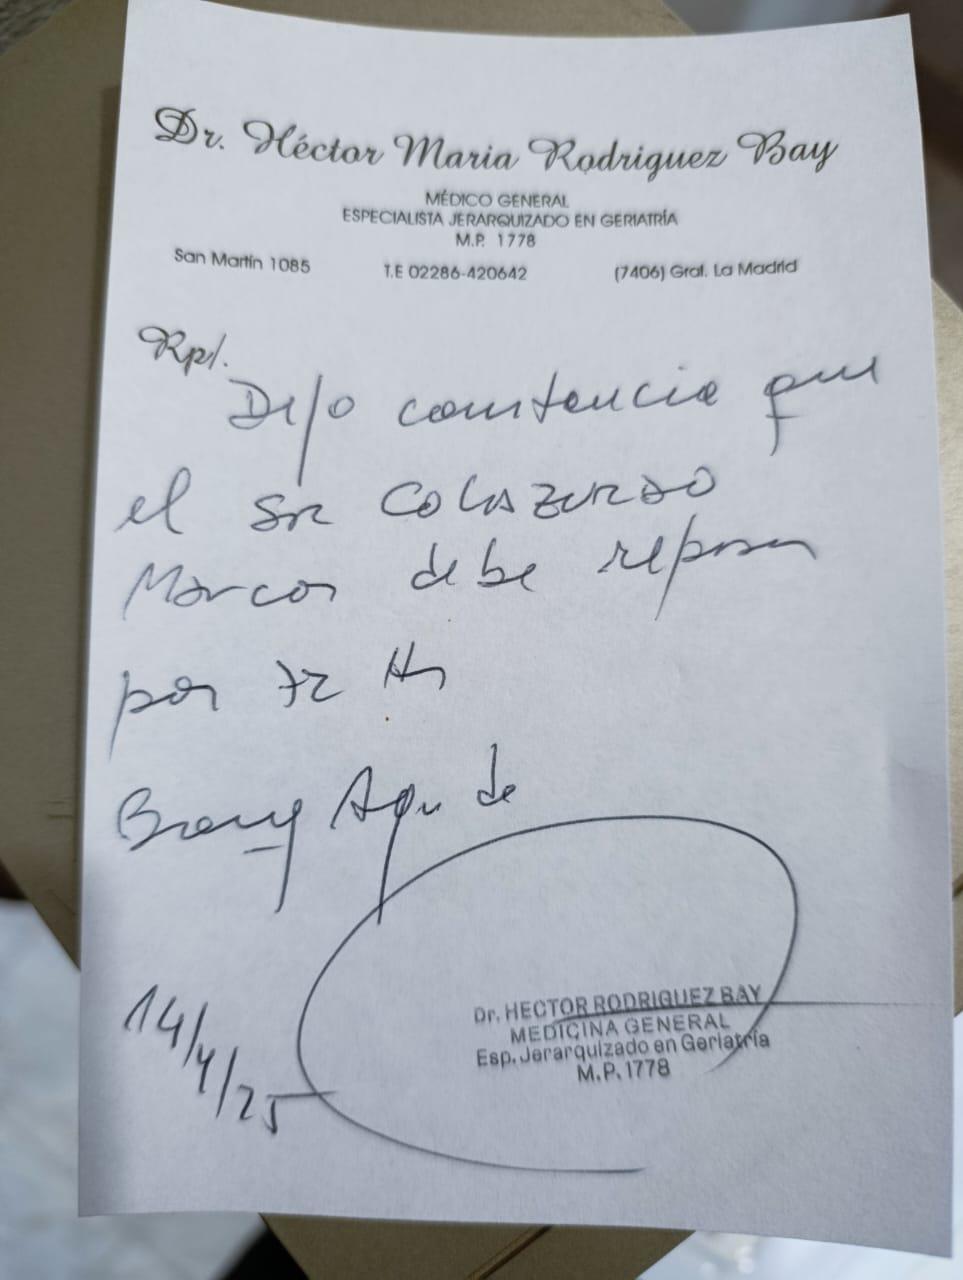 Dr. Héctor Maria Rodriguez Bay
MÉDICO GENERAL
ESPECIALISTA JERARQUIZADO EN GERIATRÍA
M.P. 1778
San Martín 1085 T.E 02286-420642 (7406) Gral. La Madrid
Rp/.
Dejo constancia que
el Sr COLAZURDO
Marcos debe reposar
por 72 Hs
14/4/25
Dr. HECTOR RODRIGUEZ BAY
MEDICINA GENERAL
Esp. Jerarquizado en Geriatría
M.P. 1778